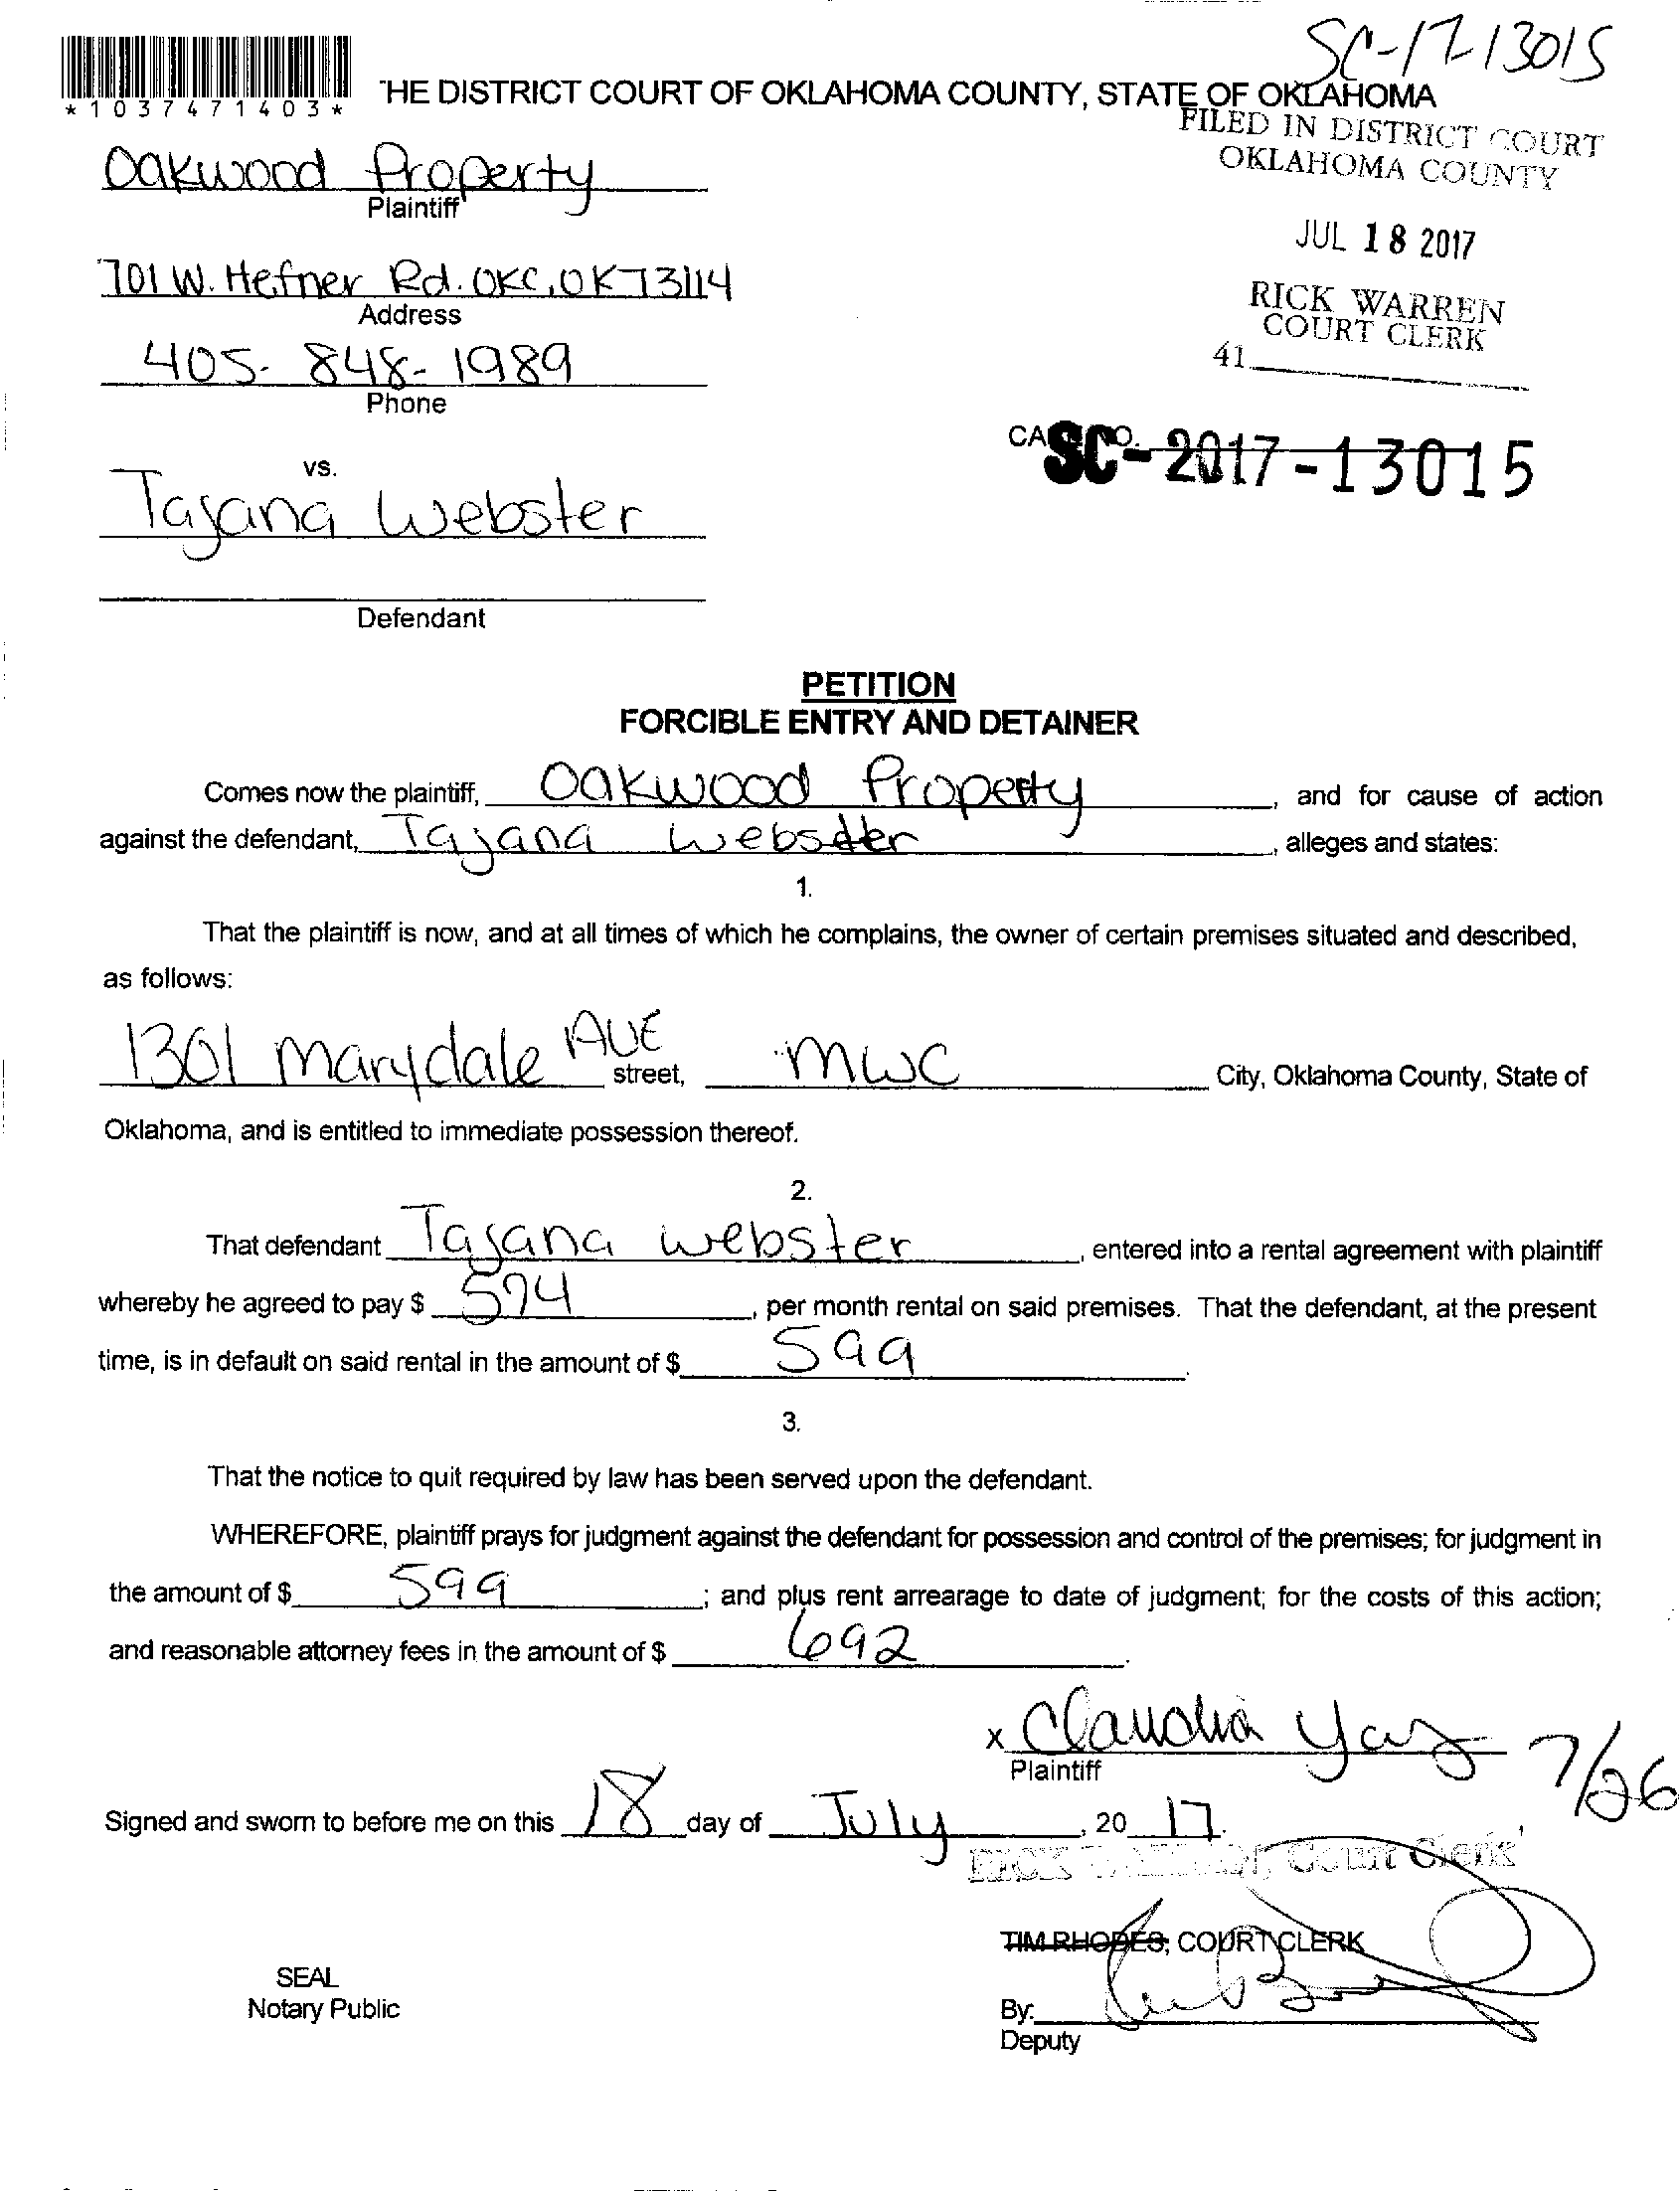 SC-17-13015
*1037471403*
THE DISTRICT COURT OF OKLAHOMA COUNTY, STATE OF OKLAHOMA
FILED IN DISTRICT COURT
OKLAHOMA COUNTY
Oakwood Property
Plaintiff
JUL 18 2017
701 W. Hefner Rd. OKC, OK 73114
Address
RICK WARREN
COURT CLERK
405-848-1989
41
Phone
SC-2017-13015
vs.
Tajana Webster
Defendant
PETITION
FORCIBLE ENTRY AND DETAINER
Comes now the plaintiff, Oakwood Property, and for cause of action
against the defendant, Tajana Webster, alleges and states:
1.
That the plaintiff is now, and at all times of which he complains, the owner of certain premises situated and described,
as follows:
1301 Marydale AVE street, MWC City, Oklahoma County, State of
Oklahoma, and is entitled to immediate possession thereof.
2.
That defendant Tajana Webster, entered into a rental agreement with plaintiff
whereby he agreed to pay $ 574, per month rental on said premises. That the defendant, at the present
time, is in default on said rental in the amount of $ 599.
3.
That the notice to quit required by law has been served upon the defendant.
WHEREFORE, plaintiff prays for judgment against the defendant for possession and control of the premises; for judgment in
the amount of $ 599; and plus rent arrearage to date of judgment; for the costs of this action;
and reasonable attorney fees in the amount of $ 692.
x Claudia
Plaintiff
7/26
Signed and sworn to before me on this 18 day of July, 2017.
RICK WARREN, Court Clerk
TIM RHODES, COURT CLERK
SEAL
Notary Public
By:
Deputy